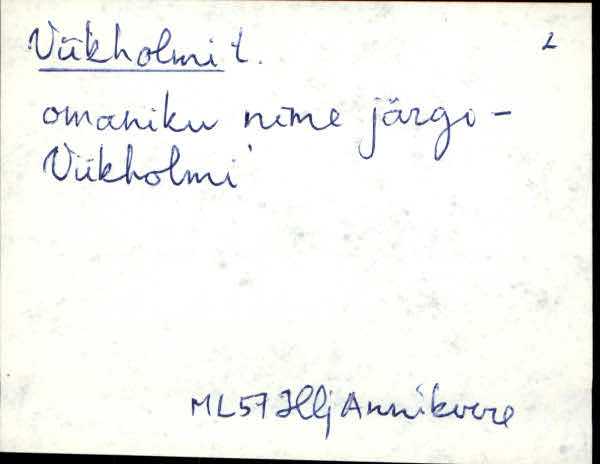 Viikholmi t. 2
omaniku nime järgi -
Viikholmi
ML57 Illj Annikvere